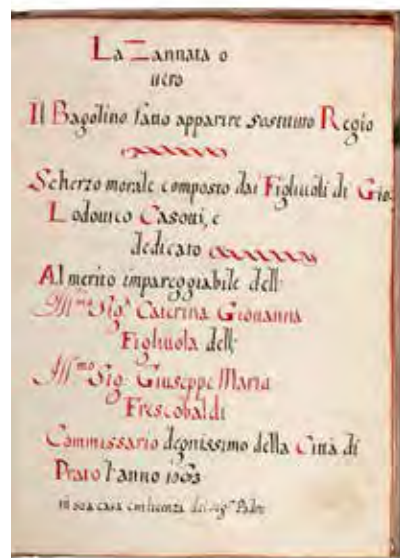 La Zannata o
uero
Il Bagolino fatto apparire sostituto Regio
Scherzo morale composto dai Figliuoli di Gio.
Lodouico Casoni, e
dedicato
Al merito impareggiabile dell:
Ill.ma Sig.a Caterina Giouanna
Figliuola dell:
Ill.mo Sig. Giuseppe Maria
Frescobaldi
Commissario degnissimo della Città di
Prato l'anno
in sua casa con licenza del sig.r Padre